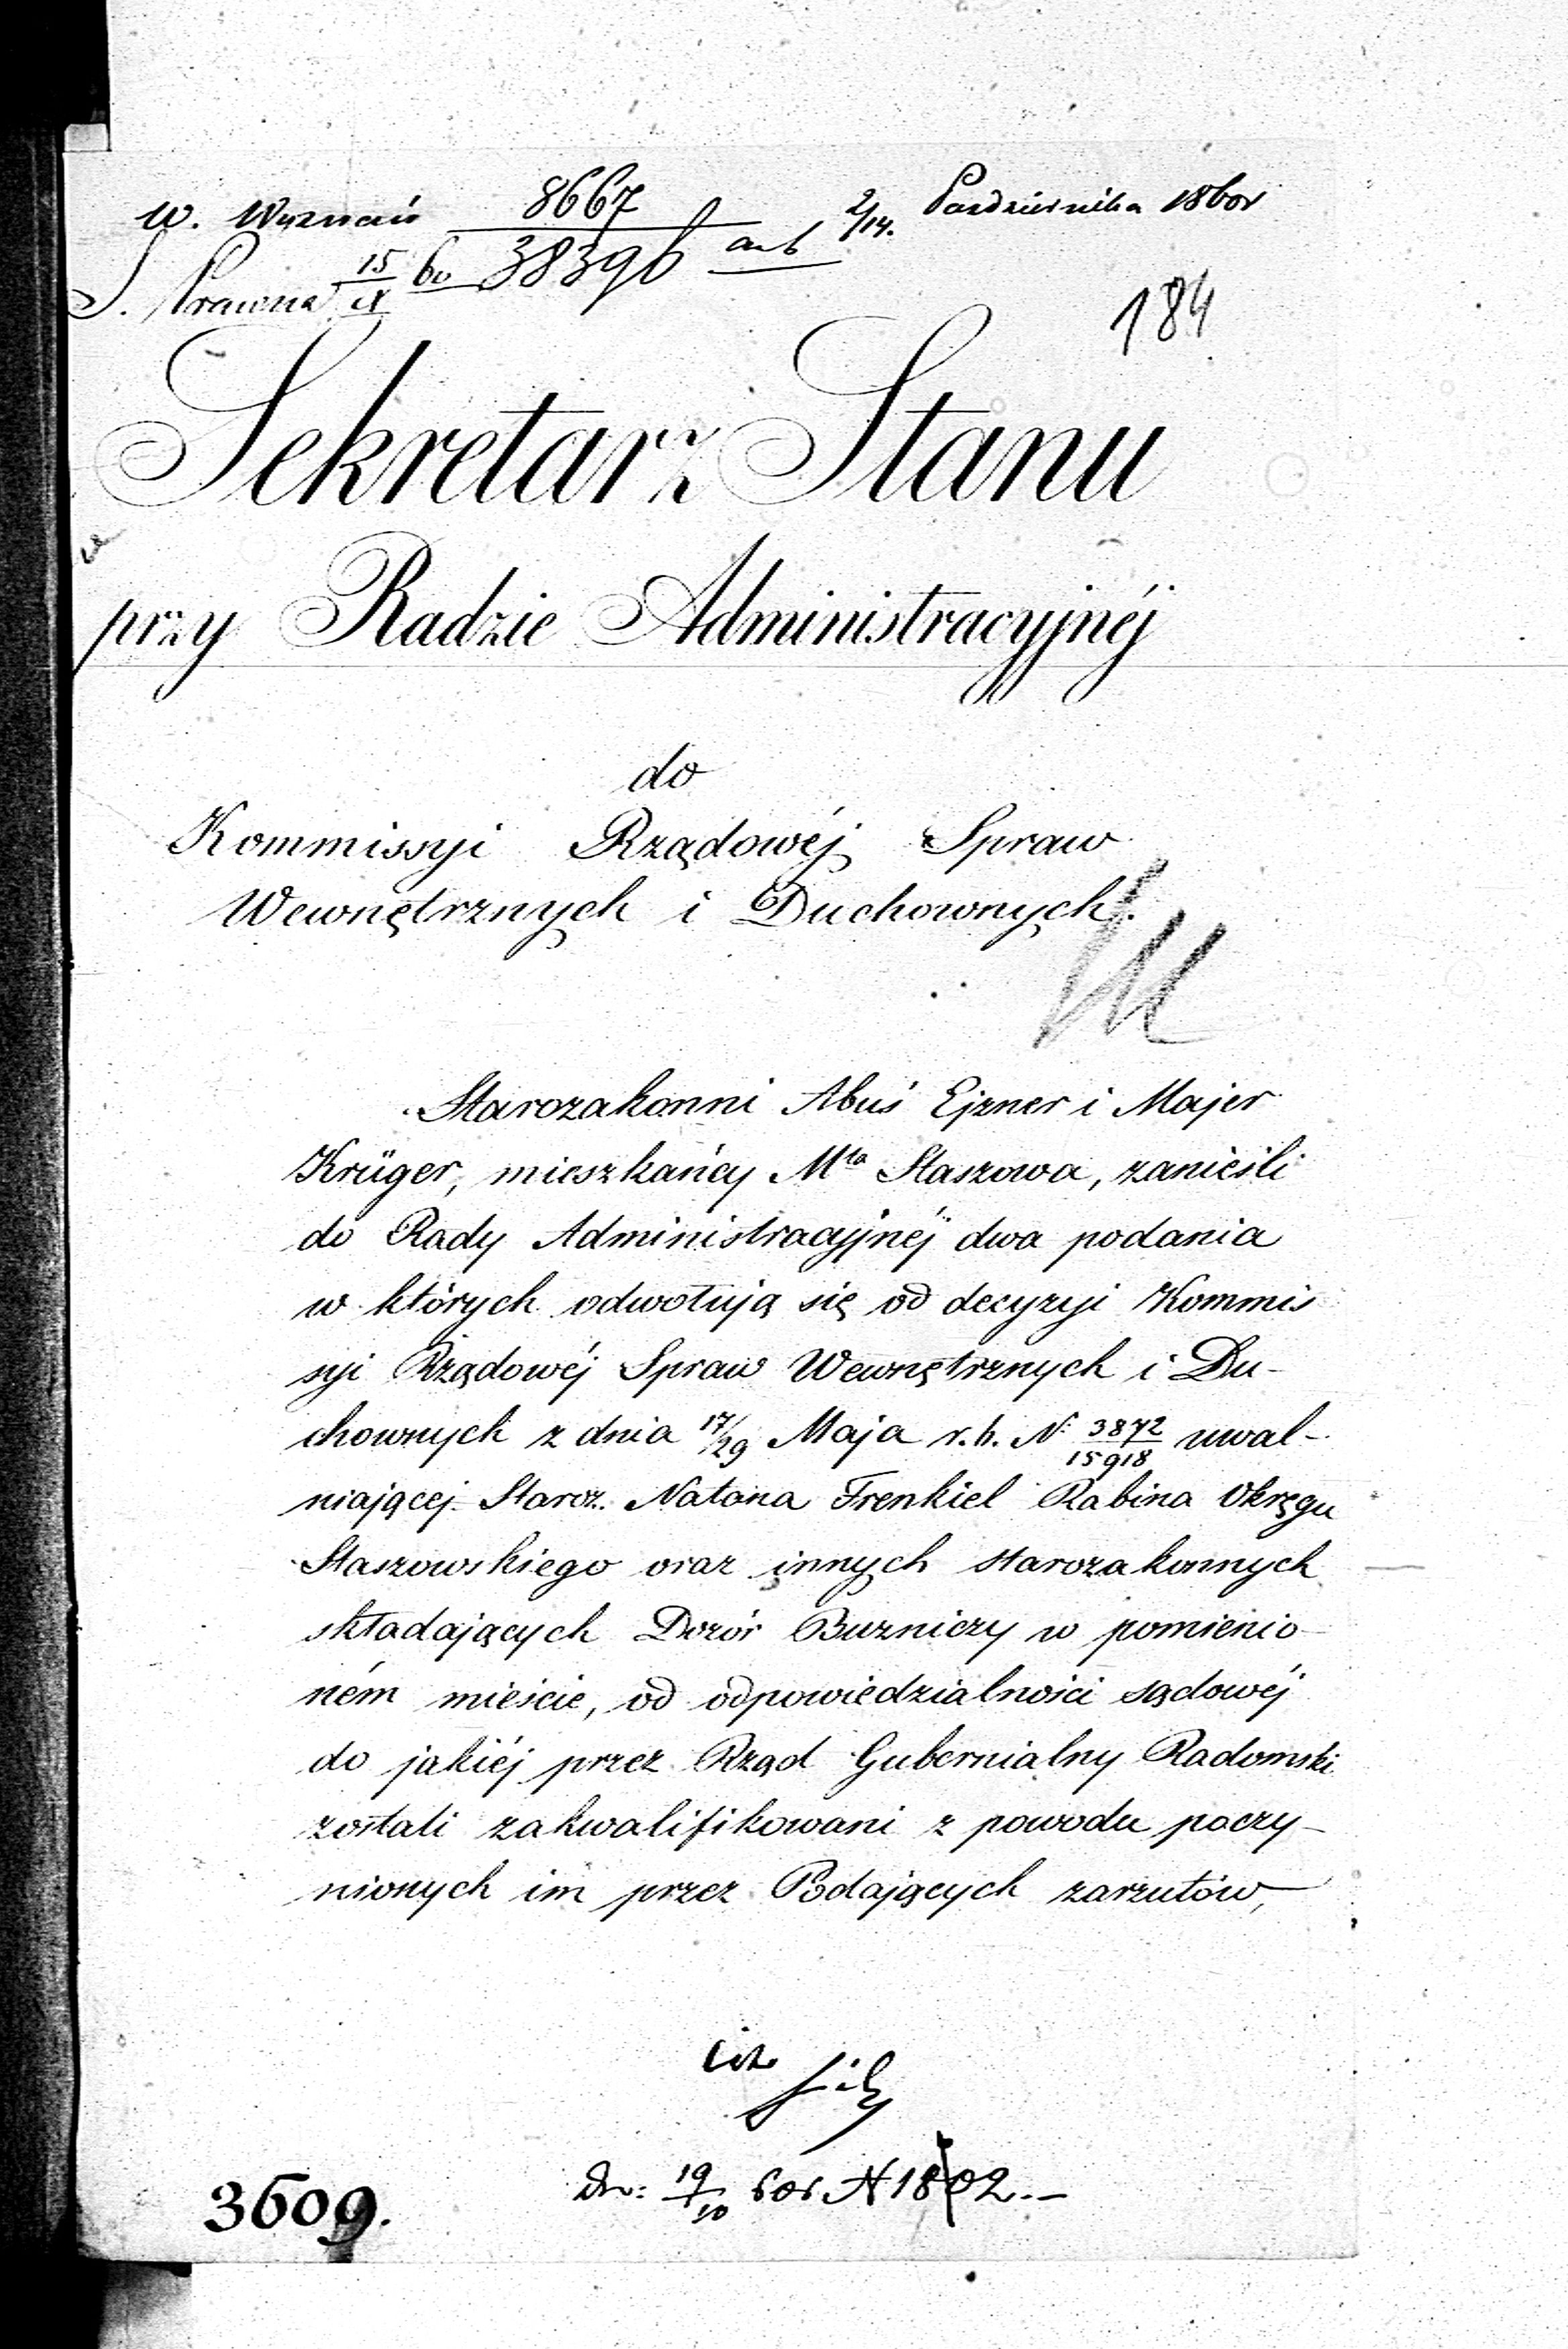 W. Wyznań 8667 2/14. Października 1860r
S. Prawna 15/IX 60 38396
184
Sekretarz Stanu
przy Radzie Administracyjnéj
do
Kommissyi Rządowéj Spraw
Wewnętrznych i Duchownych.
Starozakonni Abuś Ejzner i Majer
Krüger, mieszkańcy Mta Staszowa, zanieśli
do Rady Administracyjnéj dwa podania
w których odwołują się od decyzyi Kommis
syi Rządowéj Spraw Wewnętrznych i Du-
chownych z dnia 17/29 Maja r.b. N: 3872/15918 uwal-
niającej Staroz. Natana Frenkiel Rabina Okręgu
Staszowskiego oraz innych starozakonnych
składających Dozór Buzniczy w pomienio-
ném mieście, od odpowiedzialności sądowéj
do jakiéj przez Rząd Gubernialny Radomski
zostali zakwalifikowani z powodu poczy-
nionych im przez Podających zarzutów,
19/10 60r N 1802.-
3609.